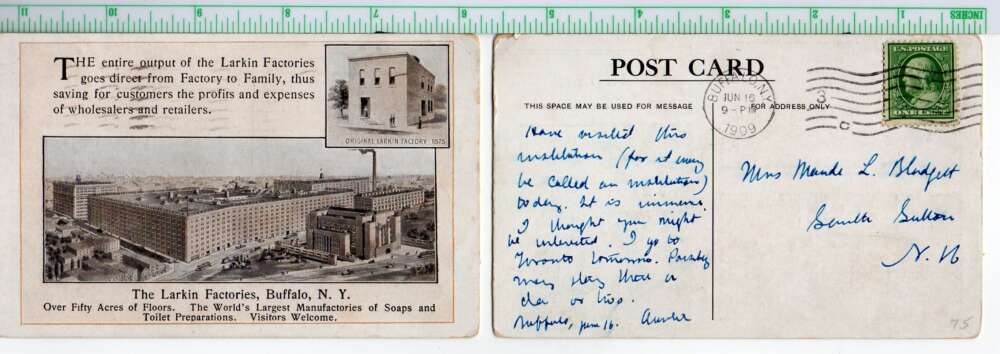 11 10 9 8 7 6 5 4 3 2 1 INCHES
THE entire output of the Larkin Factories
goes direct from Factory to Family, thus
saving for customers the profits and expenses
of wholesalers and retailers.
ORIGINAL LARKIN FACTORY 1875
The Larkin Factories, Buffalo, N. Y.
Over Fifty Acres of Floors. The World's Largest Manufactories of Soaps and
Toilet Preparations. Visitors Welcome.
POST CARD
THIS SPACE MAY BE USED FOR MESSAGE
FOR ADDRESS ONLY
BUFFALO, N.Y.
JUN 16
9 - PM
1909
3
C
U.S. POSTAGE
ONE CENT
Have visited this
institution (for it may
be called an institution)
today. It is immense.
I thought you might
be interested. I go to
Toronto tomorrow. Possibly
may stay there a
day or two.
Buffalo, June 16.
Miss Maude L. Blodgett
South Sutton
N. H
75